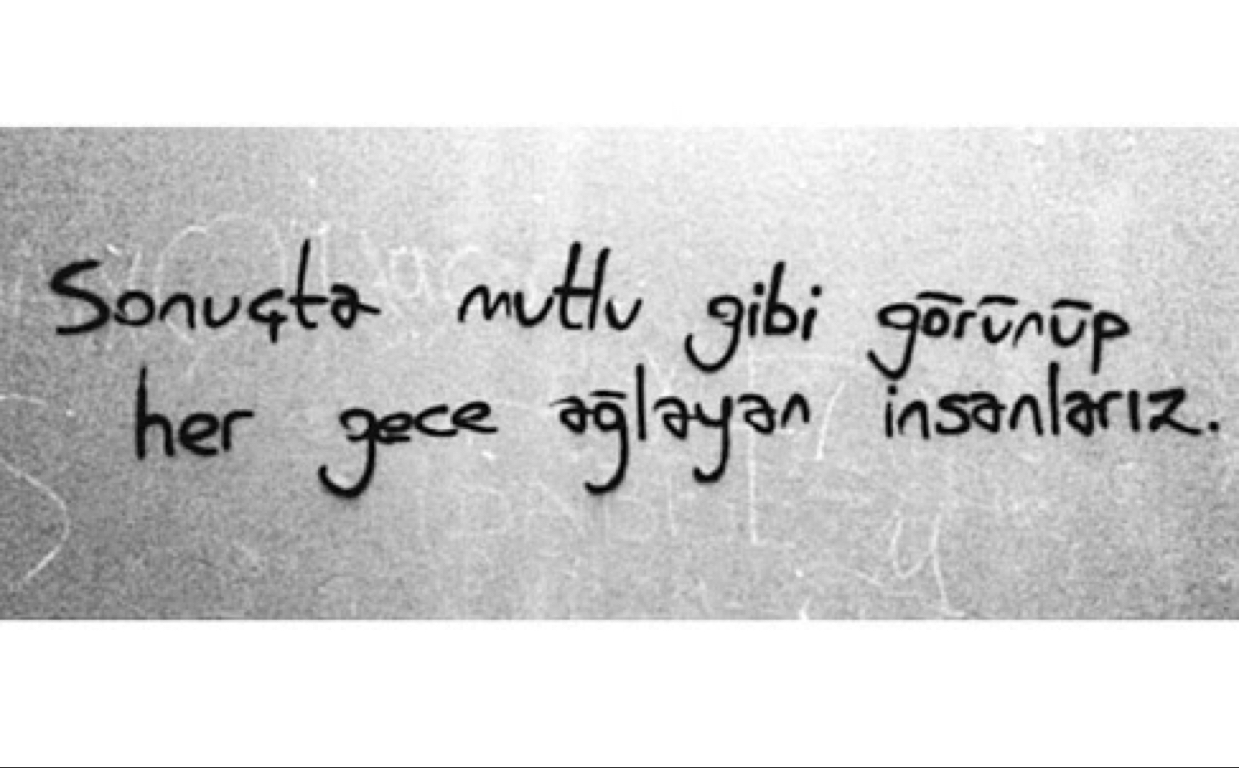 Sonuçta mutlu gibi görünüp
her gece ağlayan insanlarız.